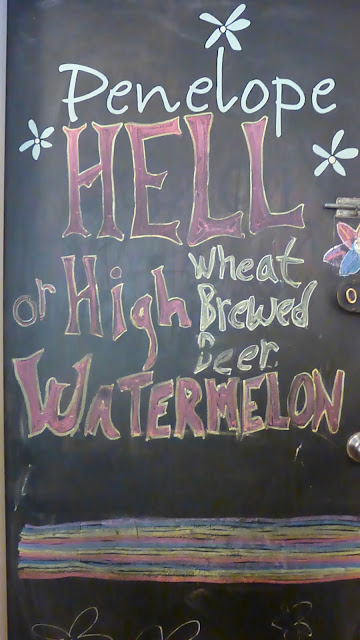 Penelope
HELL
or High
Wheat
Brewed
Beer
WATERMELON